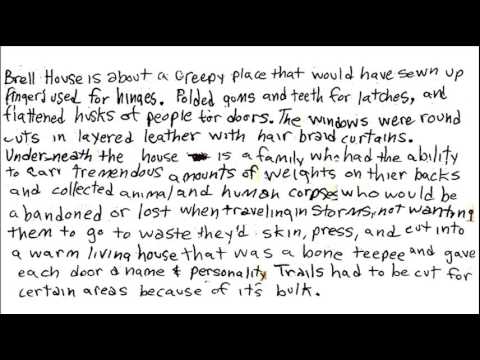 Brell House is about a creepy place that would have sewn up
fingers used for hinges. Polded goms and teeth for latches, and
flattened husks of people for doors. The windows were round
cuts in layered leather with hair braid curtains.
Underneath the house is a family who had the ability
to carr tremendous amounts of weights on thier backs
and collected animal and human corpses who would be
abandoned or lost when traveling in storms, not wanting
them to go to waste they'd skin, press, and cut into
a warm living house that was a bone teepee and gave
each door a name & personality Trails had to be cut for
certain areas because of it's bulk.